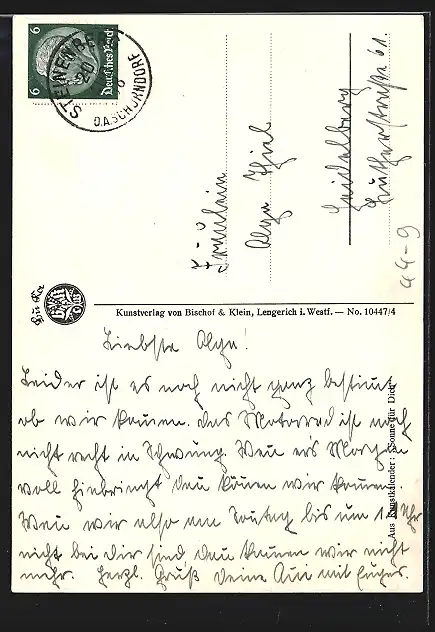 6 6
Deutsches Reich
STEINENBE
20
D.A.SCHORNDORF
Fräulein
Thiel
Heidelberg
Lutherstraße 61.
44-9
Kunstverlag von Bischof & Klein, Lengerich i. Westf. — No. 10447/4
Aus Kunstkalender: „Sonne für Dich“
Liebste Olga!
Leider ist es noch nicht ganz bestimmt
ob wir kommen. Das Motorrad ist noch
nicht recht in Schwung. Wenn er's Morgen
voll hinbringt dann können wir kommen.
Wenn wir also am Sonntag bis um Uhr
nicht bei Dir sind, dann kommen wir nicht
mehr. Herzl. Gruß Deine mit Eugen.